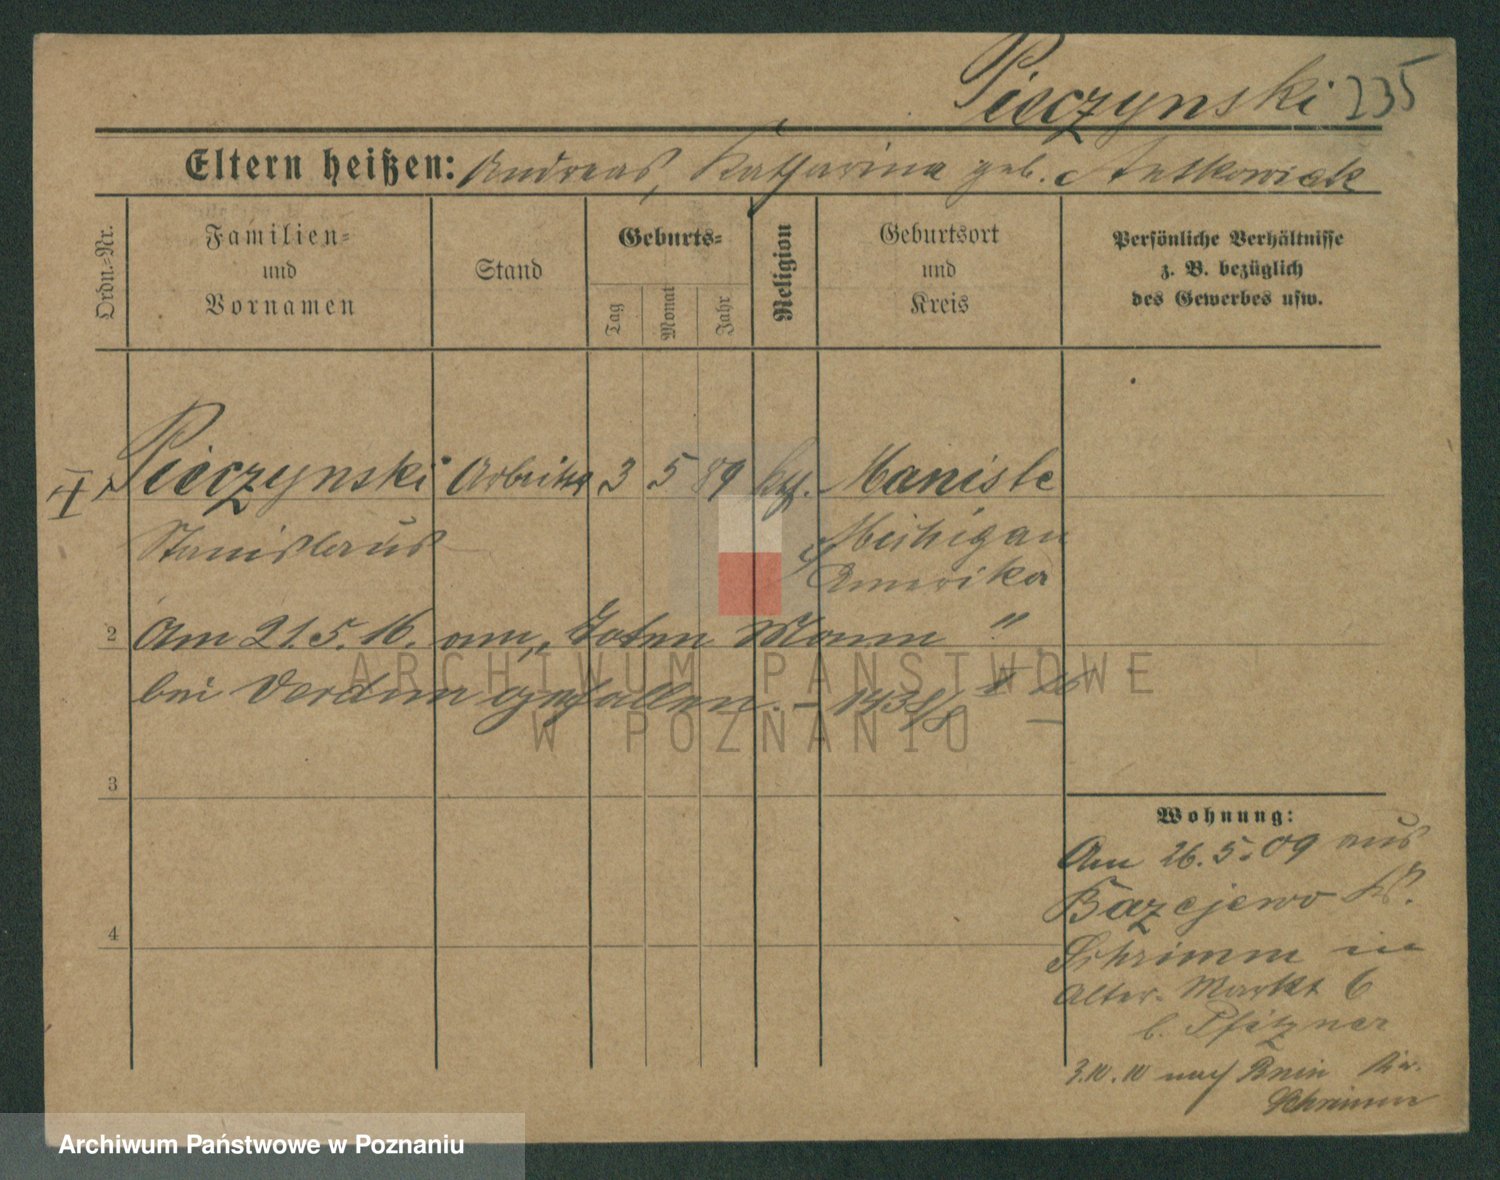 Pieczynski 235
Eltern heißen: Andreas, Katharina geb. Antkowiak
Ordn.-Nr.
Familien-
und
Vornamen
Stand
Geburts-
Tag
Monat
Jahr
Religion
Geburtsort
und
Kreis
Persönliche Verhältnisse
z. B. bezüglich
des Gewerbes usw.
Pieczynski Arbeiter 3 5 89 kath. Maniste
Stanislaus Mishigan
Amerika
2 Am 21.5.16. am „Toten Mann"
bei Verdun gefallen. –
ARCHIWUM PAŃSTWOWE
W POZNANIU
3
4
Wohnung:
Am 26.5.09 aus
Bazejewo Kr.
Schrimm in
Alter-Markt 6
b. Pfitzner
3.10.10 nach Bnin Kr.
Schrimm
Archiwum Państwowe w Poznaniu